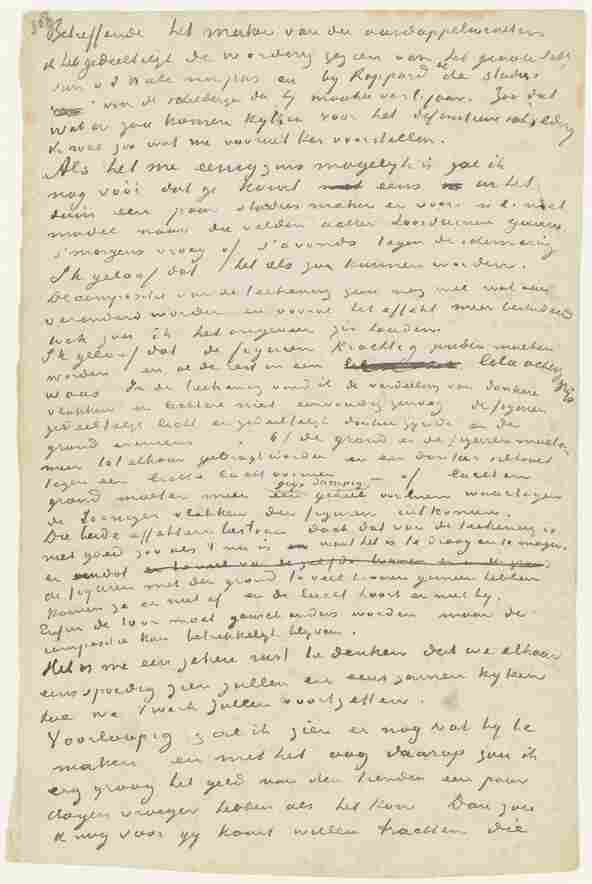 Betreffende het maken van den aardappelmarkten
ik heb gedeeltelijk de wording gezien van het groote
van v d Wale nurpas en by Rappard de studies
van de schilderij die hij maakte verl. jaar. Zoo dat
wat er zou komen kyken voor het definitieve schilderij
ik wel zoo wat me vooruit kan voorstellen.
Als het me eenigzins mogelyk is zal ik
nog vóór dat ge komt eens in het
duin een paar studies maken en voorts met
model naar die velden achter
s'morgens vroeg of s'avonds tegen de schemering
Ik geloof dat het als zou kunnen worden.
De compositie van de teekening zou nog wel wat
veranderd worden en vooral het effekt meer bestudeerd
toch zou ik het ongeveer zoo houden
Ik geloof dat de figuren krachtig zouden moeten
worden en de rest in een lila achtig grijs
waas In de teekening vond ik de verdeeling van donkere
vlakken en lichtere niet eenvoudig genoeg de figuren
gedeeltelijk licht en gedeeltelijk donker en de
grond eveneens. of de grond en de figuren moeten
meer tot elkaar gebragt worden en een donker silhouet
tegen een lichte lucht vormen of lucht en
grond moeten meer een grijs dampig geheel vormen waartegen
de vlakken der figuren uitkomen.
Die beide effekten bestaan doch dat van de teekening is
niet goed zoo als 't nu is want het is te droog en te mager.
en
de figuren met den grond te veel toonen gemeen hebben
komen ze er niet af en de lucht hoort er niet by.
Enfin de toon moet gansch anders worden maar de
compositie kan betrekkelyk blyven.
Het is me een zekere rust te denken dat we elkaar
eens spoedig zien zullen en eens zamen kyken
hoe we 't werk zullen voortzetten.
Voorloopig zal ik zien er nog wat by te
maken en met het oog daarop zou ik
erg graag het geld van den tienden een paar
dagen vroeger hebben als het kon Dan zou
ik nog voor gy komt willen trachten die